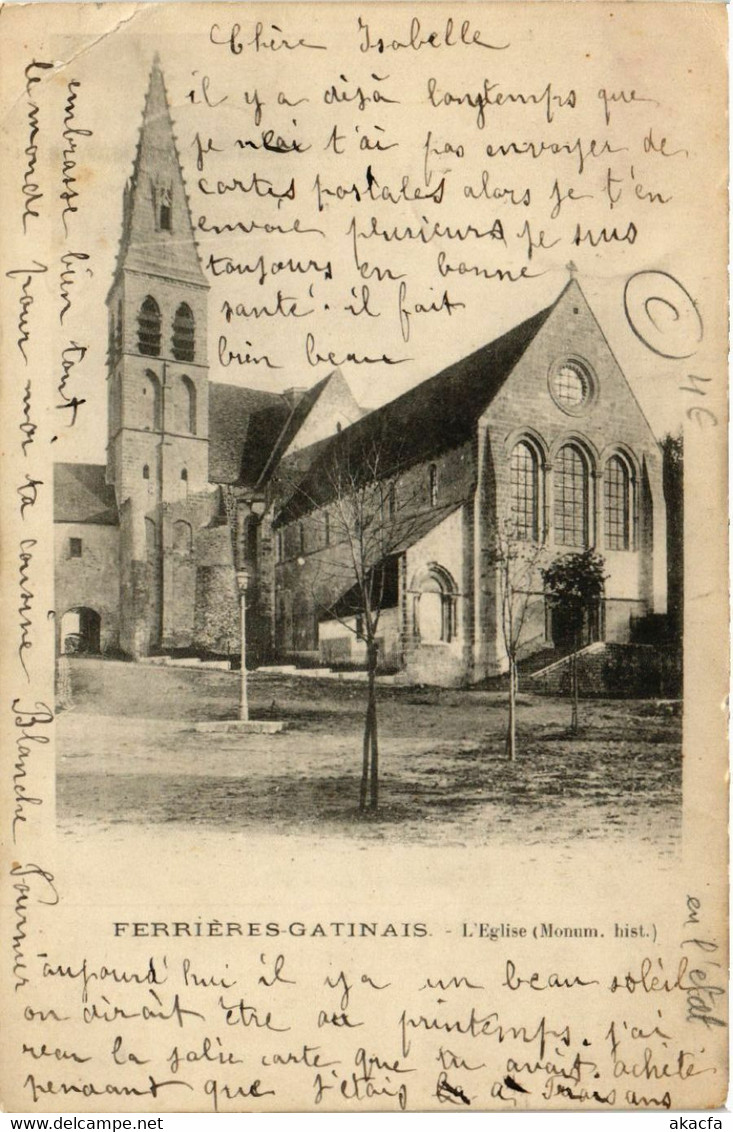 Chère Isabelle
il y a déjà longtemps que
je n'ai t'ai pas envoyer de
cartes postales alors je t'en
envoie plusieurs je suis
toujours en bonne
santé. il fait
bien beau
aujourd'hui il y a un beau soleil
on dirait être au printemps. j'ai
reçu la jolie carte que tu avait acheté
pendant que j'étais a
embrasse bien tant
le monde pour moi ta cousine Blanche Fournier
FERRIÈRES-GATINAIS. - L'Eglise (Monum. hist.)
C
4€
en l'état
akacfa